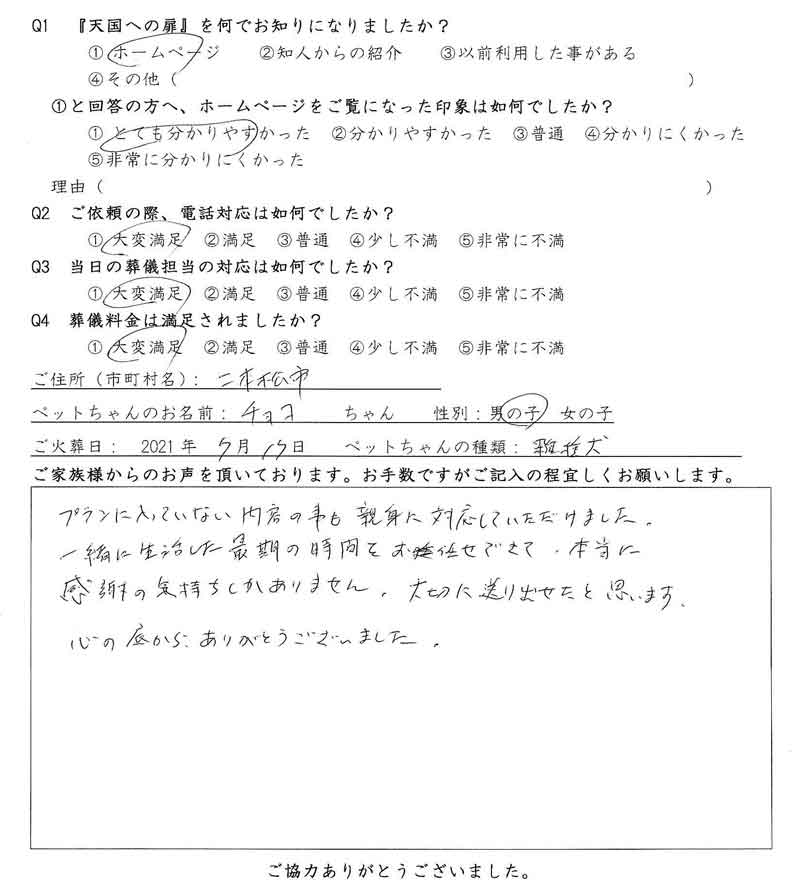 Q1 『天国への扉』を何でお知りになりましたか？
①ホームページ ②知人からの紹介 ③以前利用した事がある
④その他（ ）
①と回答の方へ、ホームページをご覧になった印象は如何でしたか？
①とても分かりやすかった ②分かりやすかった ③普通 ④分かりにくかった
⑤非常に分かりにくかった
理由（ ）
Q2 ご依頼の際、電話対応は如何でしたか？
①大変満足 ②満足 ③普通 ④少し不満 ⑤非常に不満
Q3 当日の葬儀担当の対応は如何でしたか？
①大変満足 ②満足 ③普通 ④少し不満 ⑤非常に不満
Q4 葬儀料金は満足されましたか？
①大変満足 ②満足 ③普通 ④少し不満 ⑤非常に不満
ご住所（市町村名）： 二本松市
ペットちゃんのお名前： チョコ ちゃん 性別：男の子 女の子
ご火葬日： 2021年 月 日 ペットちゃんの種類： 雑種犬
ご家族様からのお声を頂いております。お手数ですがご記入の程宜しくお願いします。
プランに入っていない内容の事も親身に対応していただけました。
一緒に生活した最期の時間をお任せできて、本当に
感謝の気持ちしかありません。大切に送り出せたと思います。
心の底から、ありがとうございました。
ご協力ありがとうございました。